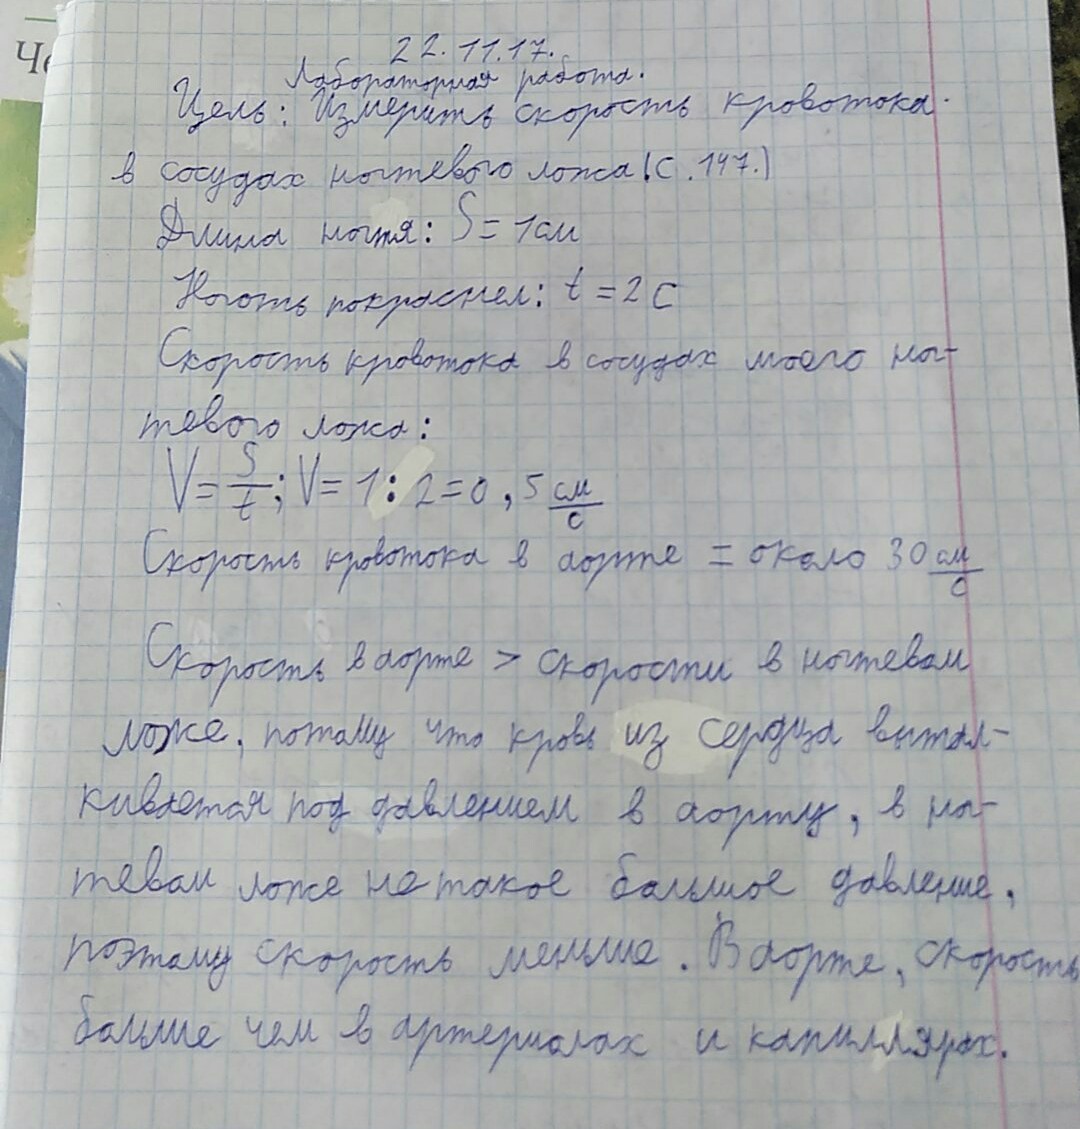 Че
22.11.17.
Лабораторная работа.
Цель: Измерить скорость кровотока
в сосудах ногтевого ложа (с. 147.)
Длина ногтя: S = 1 см
Ноготь покраснел: t = 2 с
Скорость кровотока в сосудах моего ног-
тевого ложа:
V = S/t; V = 1 : 2 = 0,5 см/с
Скорость кровотока в аорте = около 30 см/с
Скорость в аорте > скорости в ногтевом
ложе, потому что кровь из сердца вытал-
кивается под давлением в аорту, в ног-
тевом ложе не такое большое давление,
поэтому скорость меньше. В аорте, скорость
больше чем в артериолах и капиллярах.